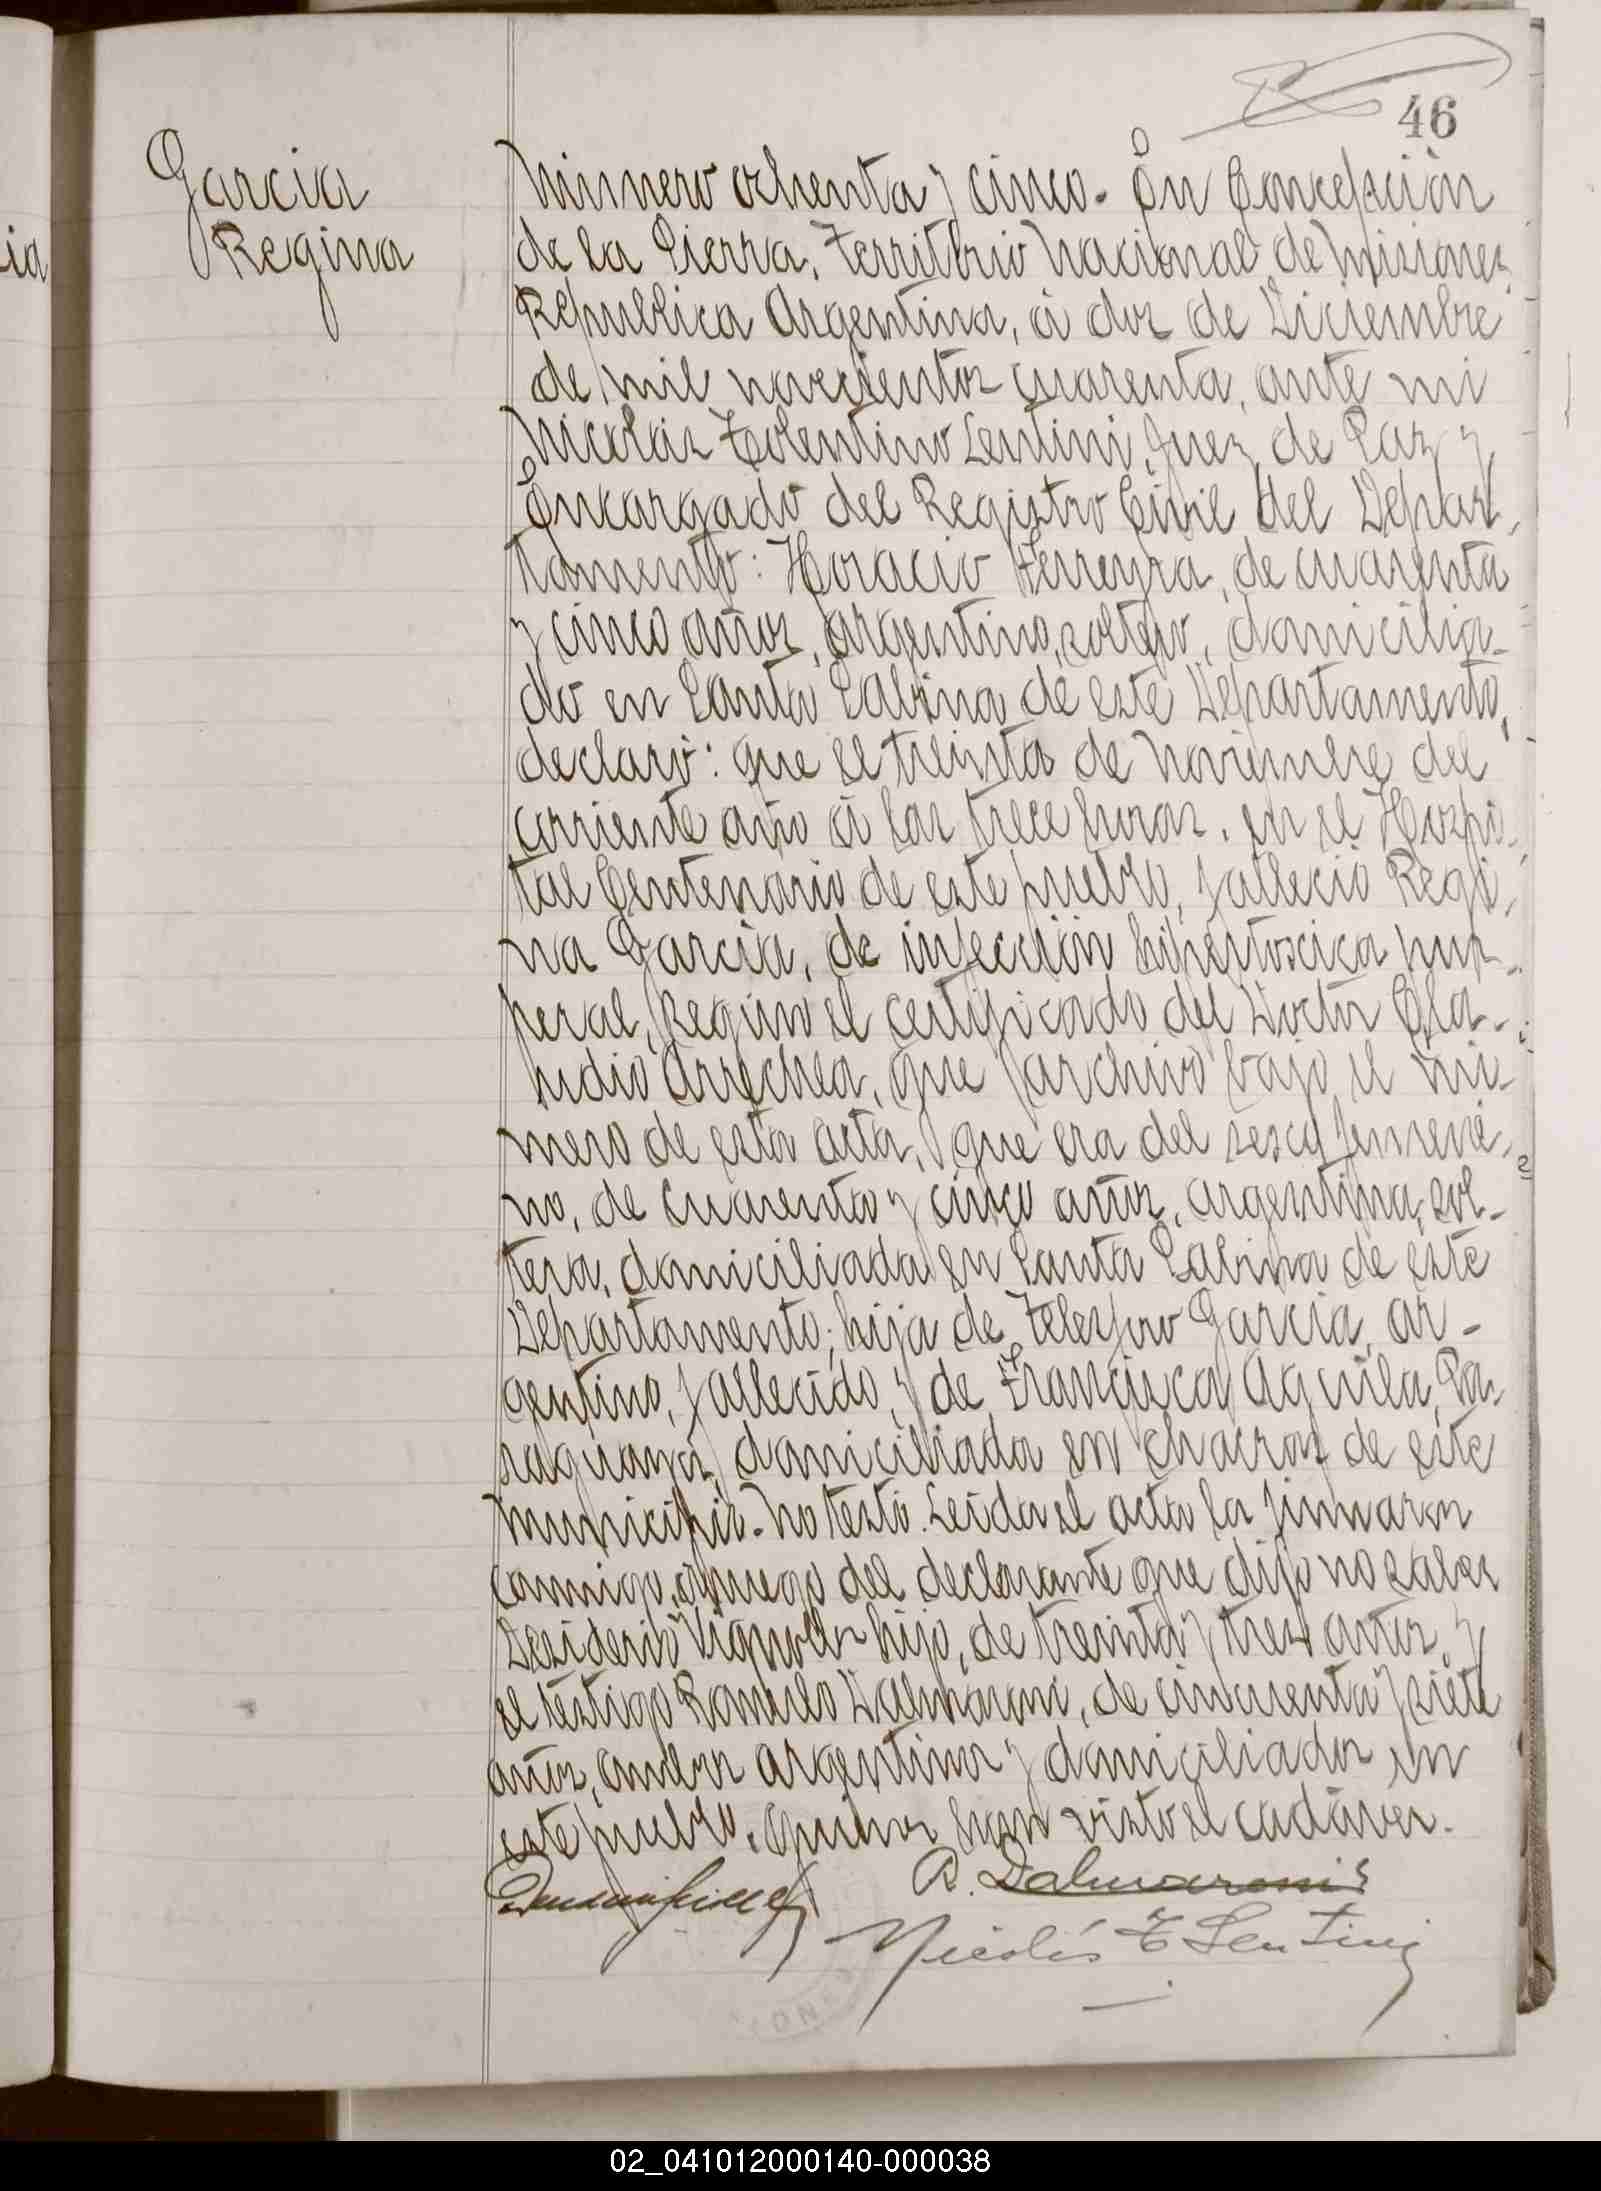 46
Garcia
Regina
Número ochenta y cinco. En Concepción
de la Sierra, Territorio Nacional de Misiones
República Argentina, á dos de Diciembre
de mil novecientos cuarenta, ante mi
Nicolás Tolentino Lentini, Juez de Paz y
Encargado del Registro Civil del Depar-
tamento: Horacio Ferreyra, de cuarenta
y cinco años, argentino, soltero, domicilia-
do en Santa Sabina de este Departamento,
declaró: que el treinta de Noviembre del
corriente año á las trece horas, en el Hospi-
tal Centenario de este pueblo, falleció Regi-
na Garcia, de infección hipertoscica puer-
peral, según el certificado del Doctor Cla-
hudio Arrechea, que archivo bajo el nú-
mero de esta acta, que era del sexo femeni-
no, de cuarenta y cinco años, argentina, sol-
tera, domiciliada en Santa Sabina de éste
Departamento, hija de Telesforo Garcia, ar-
gentino, fallecido, y de Francisca Aguila, Pa-
raguaya, domiciliada en chacras de este
municipio. No testó. Leida el acta la firmaron
conmigo, á ruego del declarante que dijo no saber
Desiderio Vignoles hijo, de treinta y tres años, y
el testigo Romulo Dalmaroni, de cincuenta y siete
años, ambos argentinos y domiciliados en
este pueblo, quienes han visto el cadáver.
R. Dalmaroni
Nicolás T Lentini
02_041012000140-000038